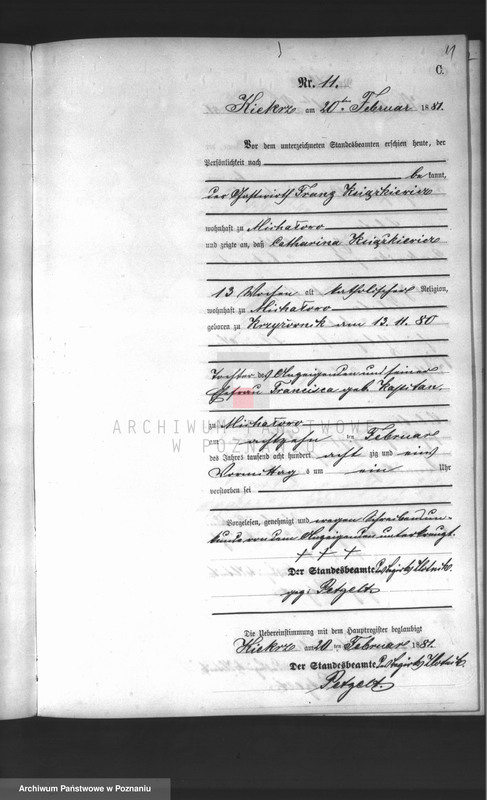 11
C.
Nr. 11.
Kiekrz am 20ten Februar 1881.
Vor dem unterzeichneten Standesbeamten erschien heute, der
Persönlichkeit nach
be kannt,
der Gastwirth Franz Książkiewicz
wohnhaft zu Michałowo
und zeigte an, daß Catharina Książkiewicz
13 Wochen alt katholischer Religion,
wohnhaft zu Michałowo
geboren zu Krzyżownik am 13.11.80
Tochter des Anzeigenden und seiner
Ehefrau Francisca geb. Kapitan
zu Michałowo
am achtzehn ten Februar
des Jahres tausend acht hundert acht zig und ein
Vormittag s um ein Uhr
verstorben sei
Vorgelesen, genehmigt und wegen Schreibensun-
kunde von dem Anzeigenden unterkreuzt.
+ + +
Der Standesbeamte
gez. Petzelt
Die Uebereinstimmung mit dem Hauptregister beglaubigt
Kiekrz am 20 ten Februar 1881.
Der Standesbeamte
Petzelt.
ARCHIWUM PAŃSTWOWE
W POZNANIU
Archiwum Państwowe w Poznaniu